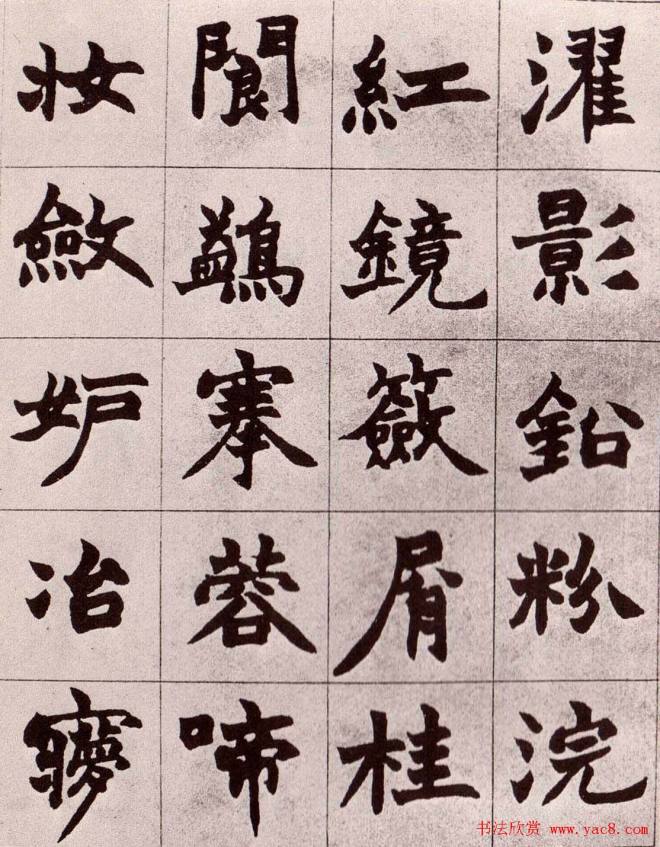 濯影鉛粉浣
紅鏡籢屑桂
閬鷁搴蓉啼
妝斂妒冶㝱
书法欣赏 www.yac8.com